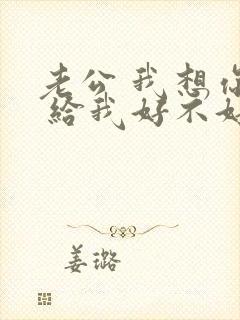 老公我想你
给我好不好
姜璐